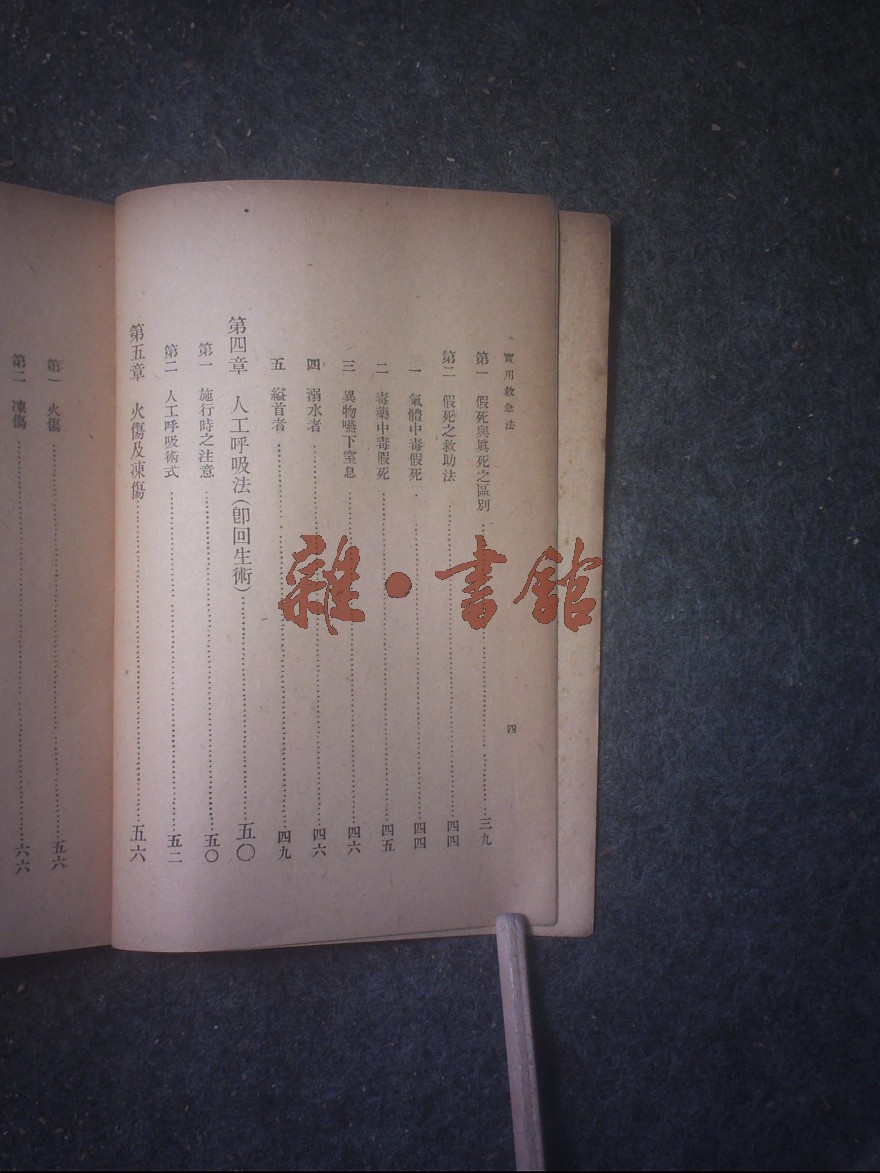 實用救急法
四
第一 假死與眞死之區別…………三九
第二 假死之救助法…………四四
一 氣體中毒假死…………四四
二 毒藥中毒假死…………四五
三 異物嚥下窒息…………四六
四 溺水者…………四六
五 縊首者…………四九
第四章 人工呼吸法(卽回生術)…………五〇
第一 施行時之注意…………五〇
第二 人工呼吸術式…………五二
第五章 火傷及凍傷…………五六
第一 火傷…………五六
第二 凍傷…………六六
雜·書館